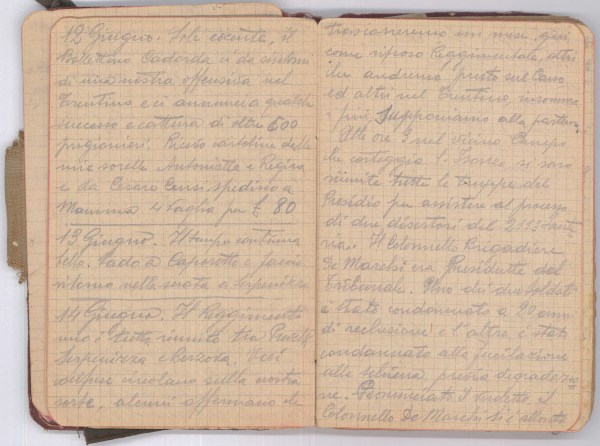 12 Giugno. Sole cocente, il
Bollettino Cadorna ci da sintomi
di una nostra offensiva nel
Trentino e ci annuncia qualche
successo e cattura di oltre 600
prigionieri. Ricevo cartoline dalle
mie sorelle Antonietta e Regina
e da Cesaro spedisco a
Mamma 4 Vaglia per £ 80
13 Giugno. Il tempo continua
bello. Vado a Caporetto e faccio
ritorno nella serata a Serpenizza
14 Giugno. Il Reggimento
uno è tutto riunito tra
Serpenizza e Voci
circolano sulla nostra
sorte, alcuni affermano che
trascorreremo un mese, quì
come riposo Reggimentale, altri
che andremo presto sul Carso
ed altri nel Trentino, insomma
Supponiamo alla partenza
Alle ore 9 nel vicino Campo
che costeggia l'Isonzo si sono
riunite tutte le truppe del
Presidio per assistere al processo
di due disertori del
Il Colonnello Brigadiere
De Marchi era Presidente del
Tribunale. Uno dei due soldati
è stato condannato a 20 anni
di reclusione e l'altro è stato
condannato alla fucilazione
alla schiena previa degradazio
ne. Pronunciato il verdetto, il
Colonnello De Marchi si è